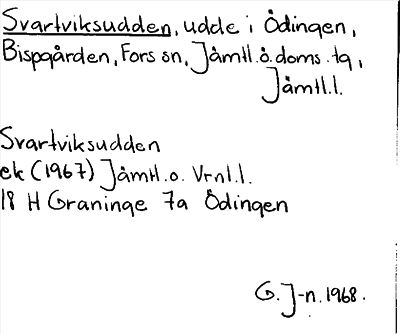 Svartviksudden, udde i Ödingen,
Bispgården, Fors sn, Jämtl.ö.doms.tg,
Jämtl.l.
Svartviksudden
ek (1967) Jämtl.o. Vrnl.l.
18 H Graninge 7a Ödingen
G. J-n. 1968.